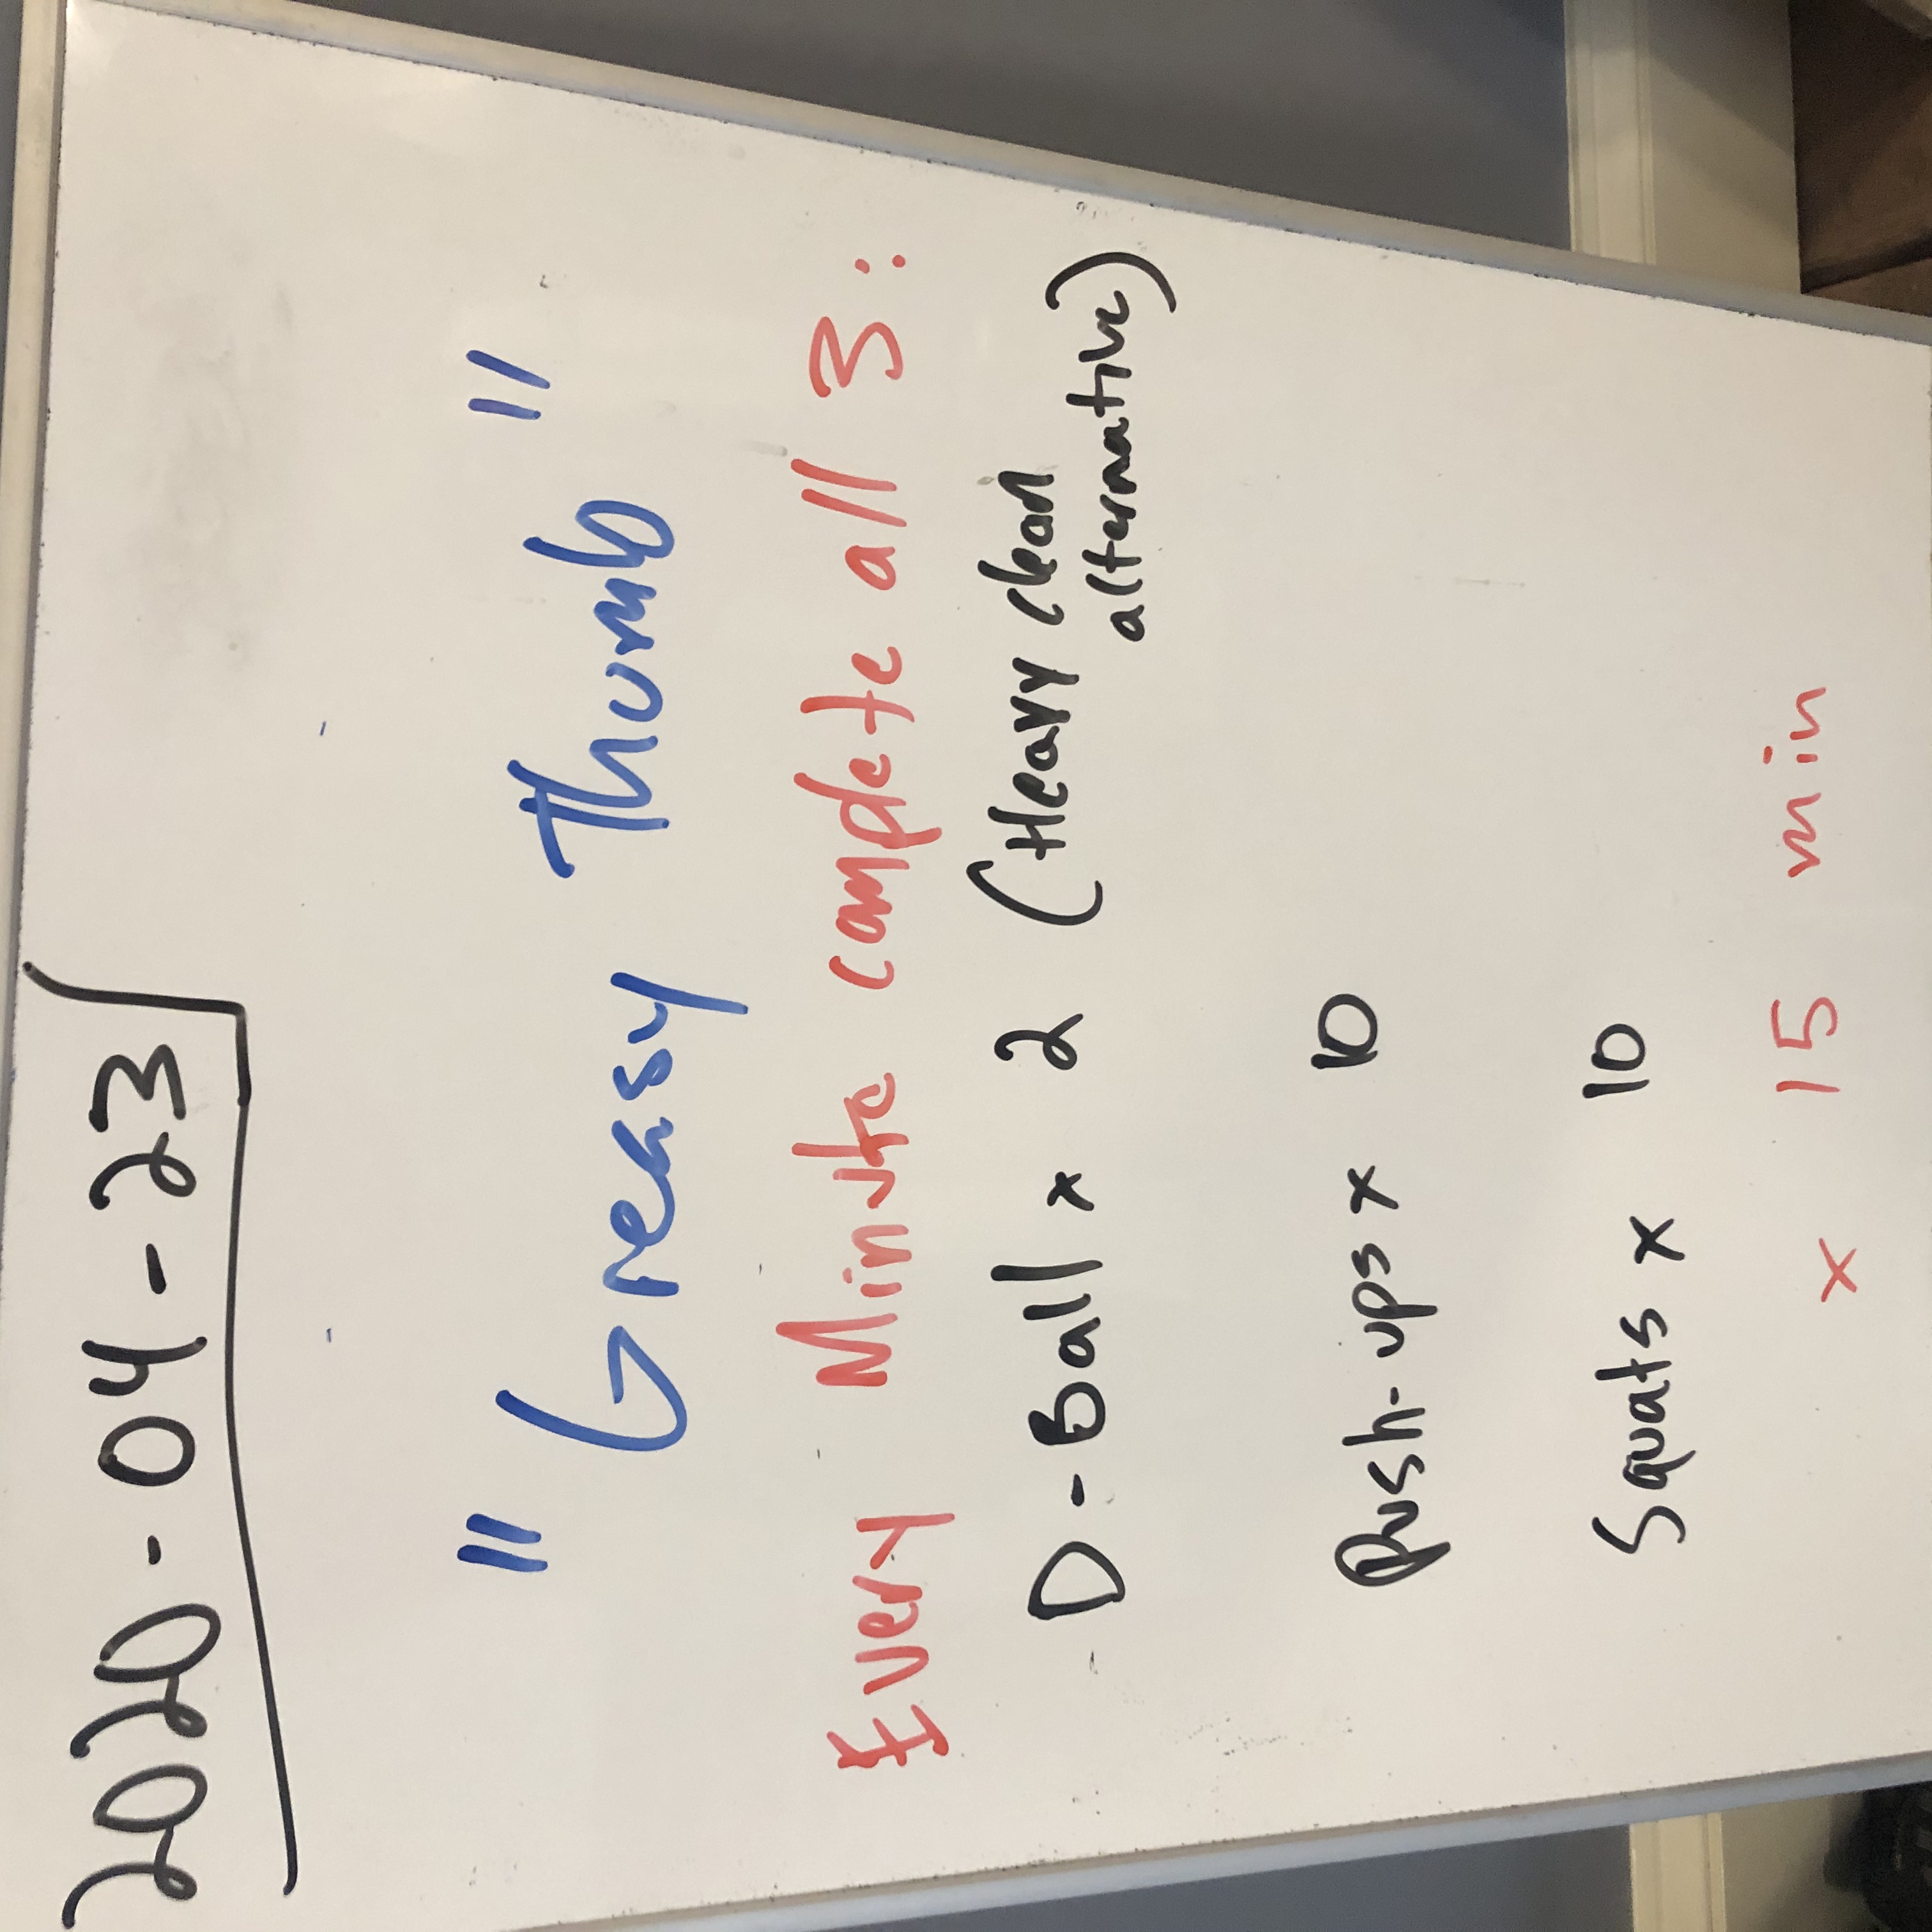 2020-04-23
"Greasy Thumb"
Every Minute complete all 3:
D-Ball x 2 (Heavy clean
alternative)
Push-ups x 10
Squats x 10
x 15 min